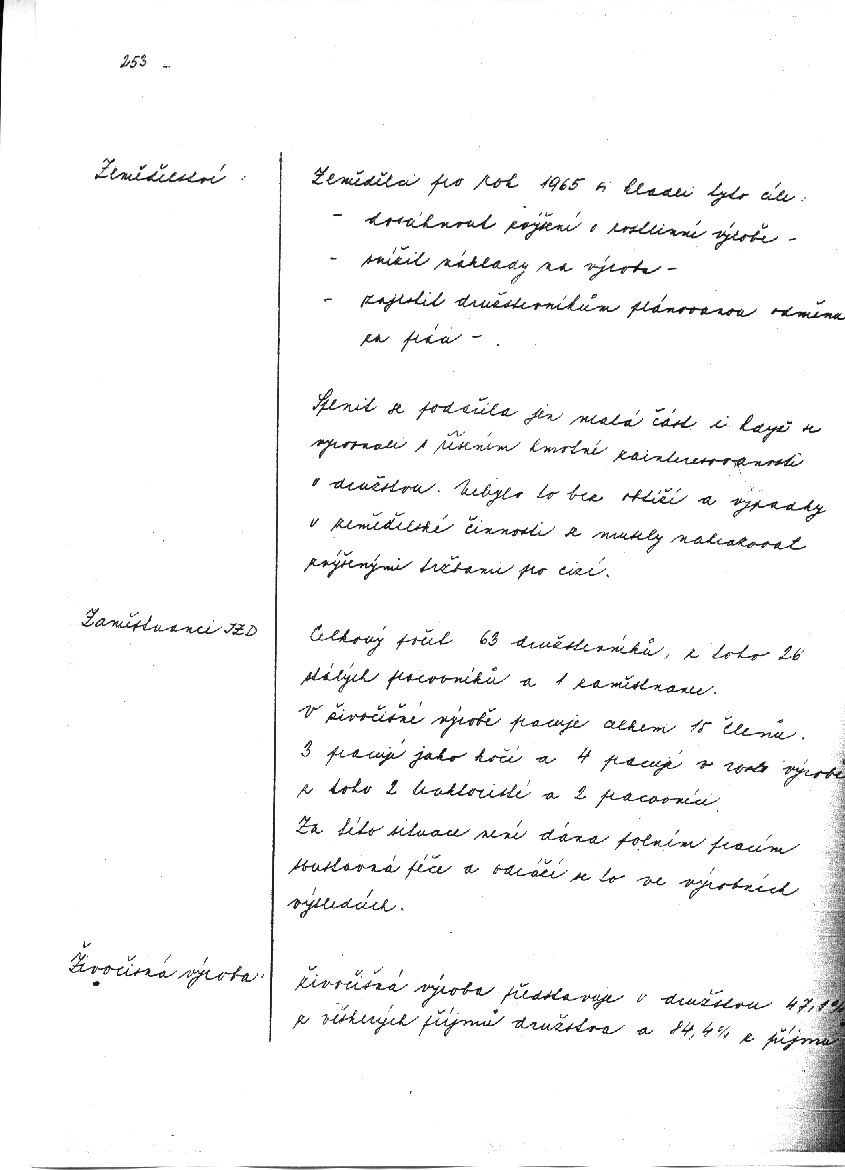 253 -
Zemědělství :
Zemědělci pro rok 1965 si kladli tyto cíle :
- dosáhnout zvýšení v rostlinné výrobě -
- snížit náklady na výrobu -
- zajistit družstevníkům plánovanou odměnu
za práci - .
Splnit se podařila jen malá část i když se
vyrovnali s řešením hmotné zainteresovanosti
v družstvu. Nebylo to bez obtíží a výpadky
v zemědělské činnosti se musely nahrazovat
zvýšenými tržbami pro cizí.
Zaměstnanci JZD
Celkový počet 63 družstevníků, z toho 26
stálých pracovníků a 1 zaměstnanec.
V živočišné výrobě pracuje celkem 15 členů.
3 pracují jako kočí a 4 pracují v rost. výrobě
z toho 2 traktoristé a 2 pracovníci.
Za této situace není dána polním pracím
soustavná péče a odráží se to ve výrobních
výsledcích.
Živočišná výroba :
Živočišná výroba představuje v družstvu 47,1%
z veškerých příjmů družstva a 84,4% z příjmů